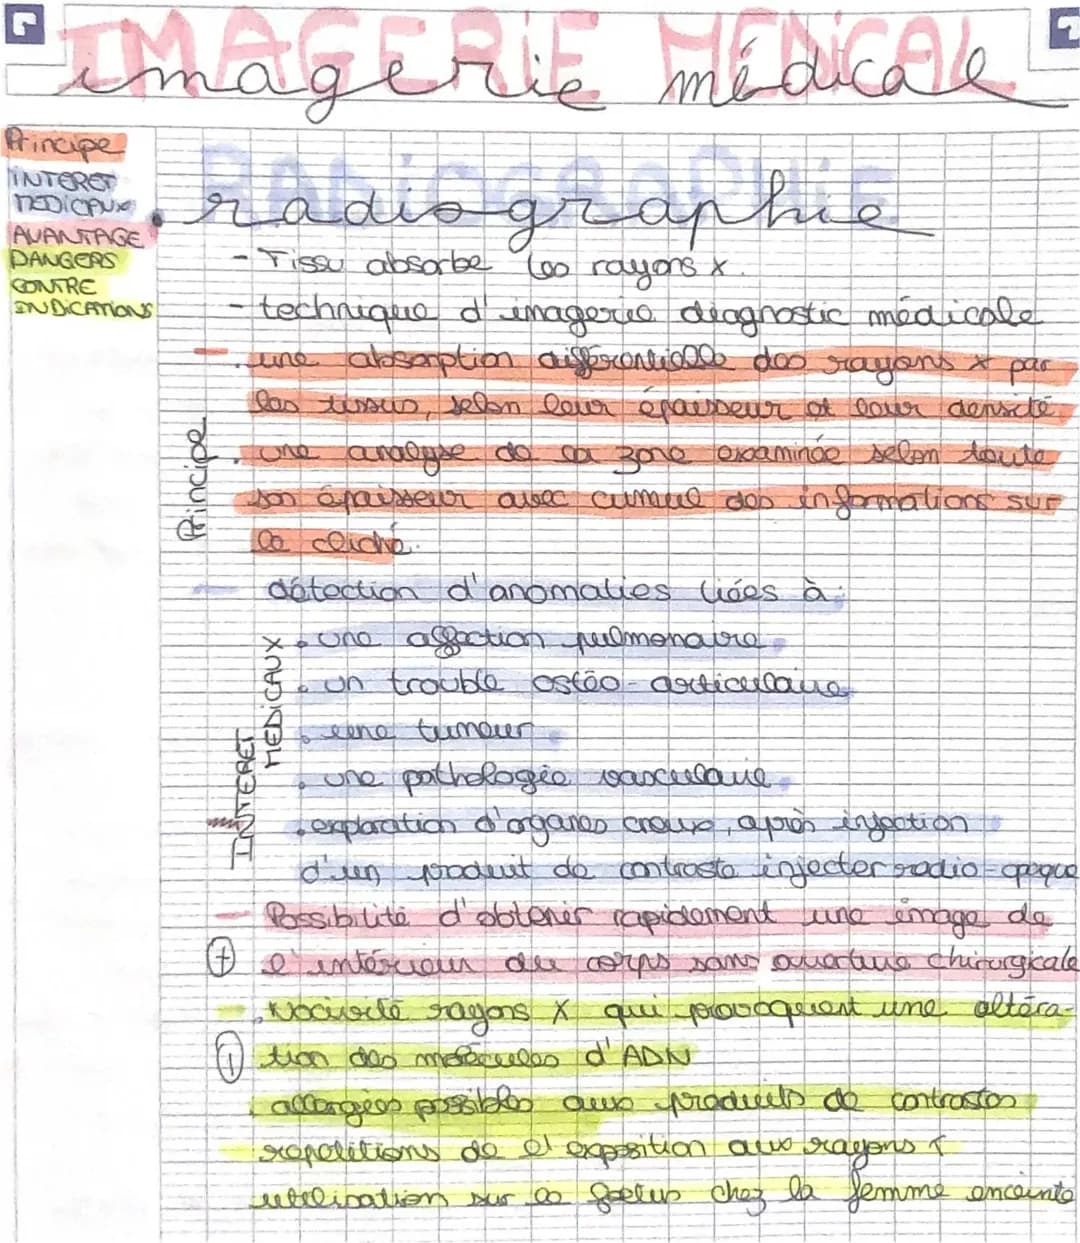 IMAGERIE MÉDICAL
imagerie médical
Principe
INTERET
MEDICAUX
AVANTAGE
DANGERS
CONTRE
INDICATIONS
RADIOGRAPHIE
• radiographie
- Tissu absorbe les rayons x.
- technique d'imagerie diagnostic médicale
Principe
- . une absorption différentielle des rayons x par
les tissus, selon leur épaisseur et leur densité
. une analyse de la zone examinée selon toute
son épaisseur avec cumul des informations sur
le cliché.
INTERET
MEDICAUX
- détection d'anomalies liées à :
. une affection pulmonaire
. un trouble ostéo-articulaire
. une tumeur
. une pathologie vasculaire
. exploration d'organes creux, après injection
d'un produit de contraste injecter radio-opaque
- Possibilité d'obtenir rapidement une image de
+ l'intérieur du corps sans ouverture chirurgicale
- . Nocivité rayons X qui provoquent une altéra-
! tion des molécules d'ADN
allergies possibles aux produits de contrastes
- repetitions de l'exposition aux rayons
utilisation sur le foetus chez la femme enceinte